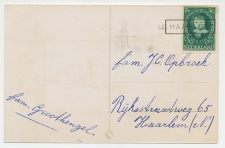 HAA
NEDERLAND
fam. J.C. Opbroek
Rijksstraatweg 65
Haarlem (N.)
fam. Groothengel.